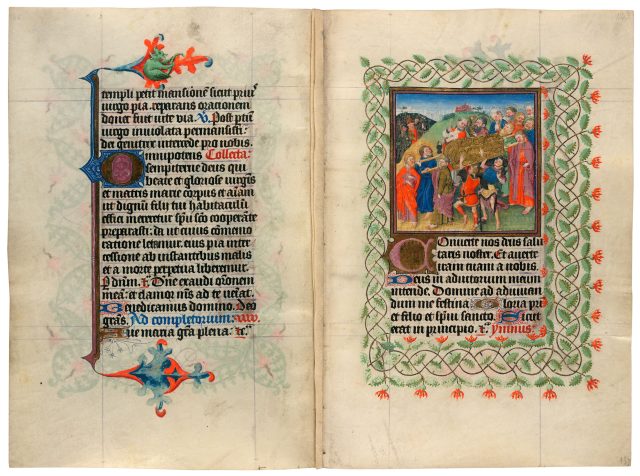 templi petit mansionē sicut
virgo pia. orationem
donec via. V. Post ptū
virgo inviolata permāsisti:
dei genitrix intercede pro nobis.
Omnipotens Collecta.
sempiterne deus qui
beate et gloriose virgīs
et matris marie corpus et aīam
ut dignū filij tui habitaculū
effici mereretur spū sco cooperāte
preparasti: da ut cuius cōmemo
ratione letamur. eius pia inter
cessione ab instantibus malis
et a morte perpetua liberemur.
P dnm. Dne exaudi oronem
meā: et clamor ad te veniat.
Benedicamus domino. Deo
gras. Ad completorium:
Ave maria gra plena:
Converte nos deus salu
taris noster. Et averte
iram tuam a nobis.
Deus in adiutorium meum
intende. Domine ad adiuvan
dum me festina. Gloria pri
et filio et spui sancto. Sicut
erat in principio. Ymnus.